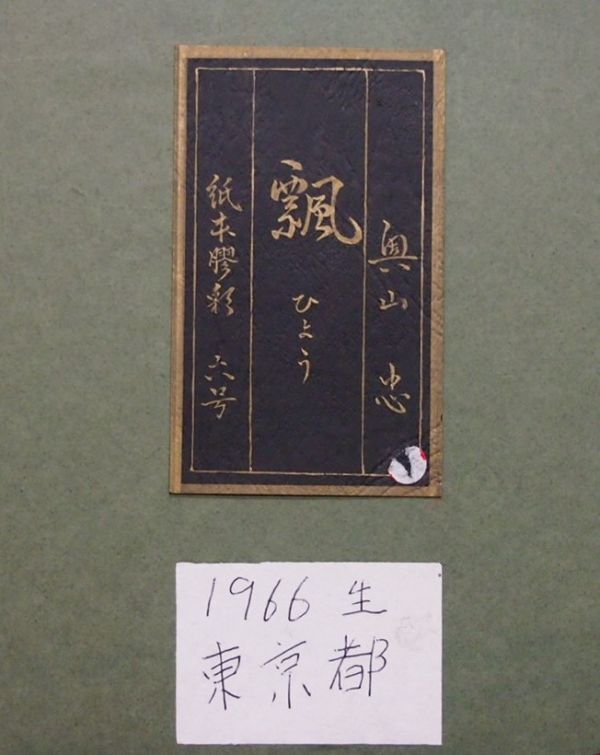 奥山 忠
飄
ひょう
紙本膠彩 六号
1966 生
東京都